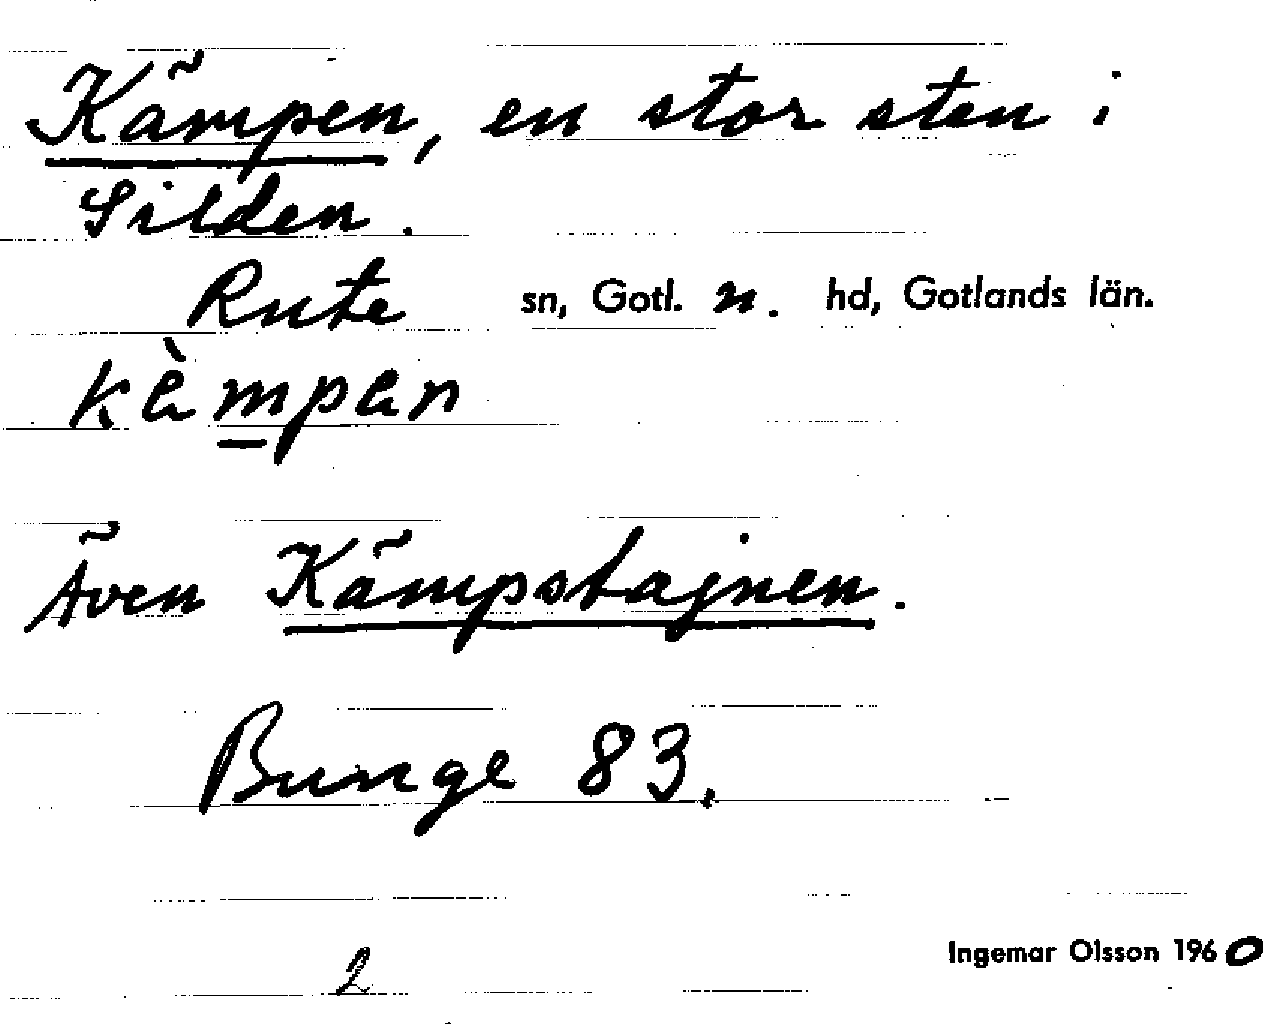 Kämpen, en stor sten i
Silden.
Rute sn, Gotl. n. hd, Gotlands län.
kä̀m̲pän
Även Kämpstajnen.
Bunge 83.
2
Ingemar Olsson 1960